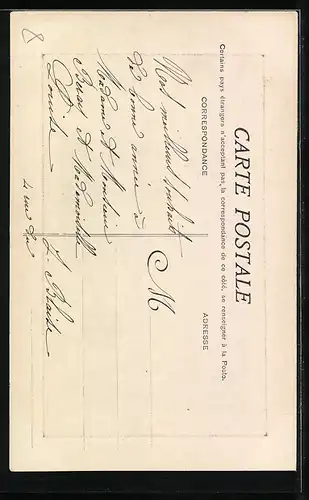 CARTE POSTALE
Certains pays étrangers n'acceptant pas la correspondance de ce côté, se renseigner à la Poste.
CORRESPONDANCE
ADRESSE
Nos meilleurs souhaits
de bonne année à
Madame et Monsieur
et Mademoiselle
Louise
M
8